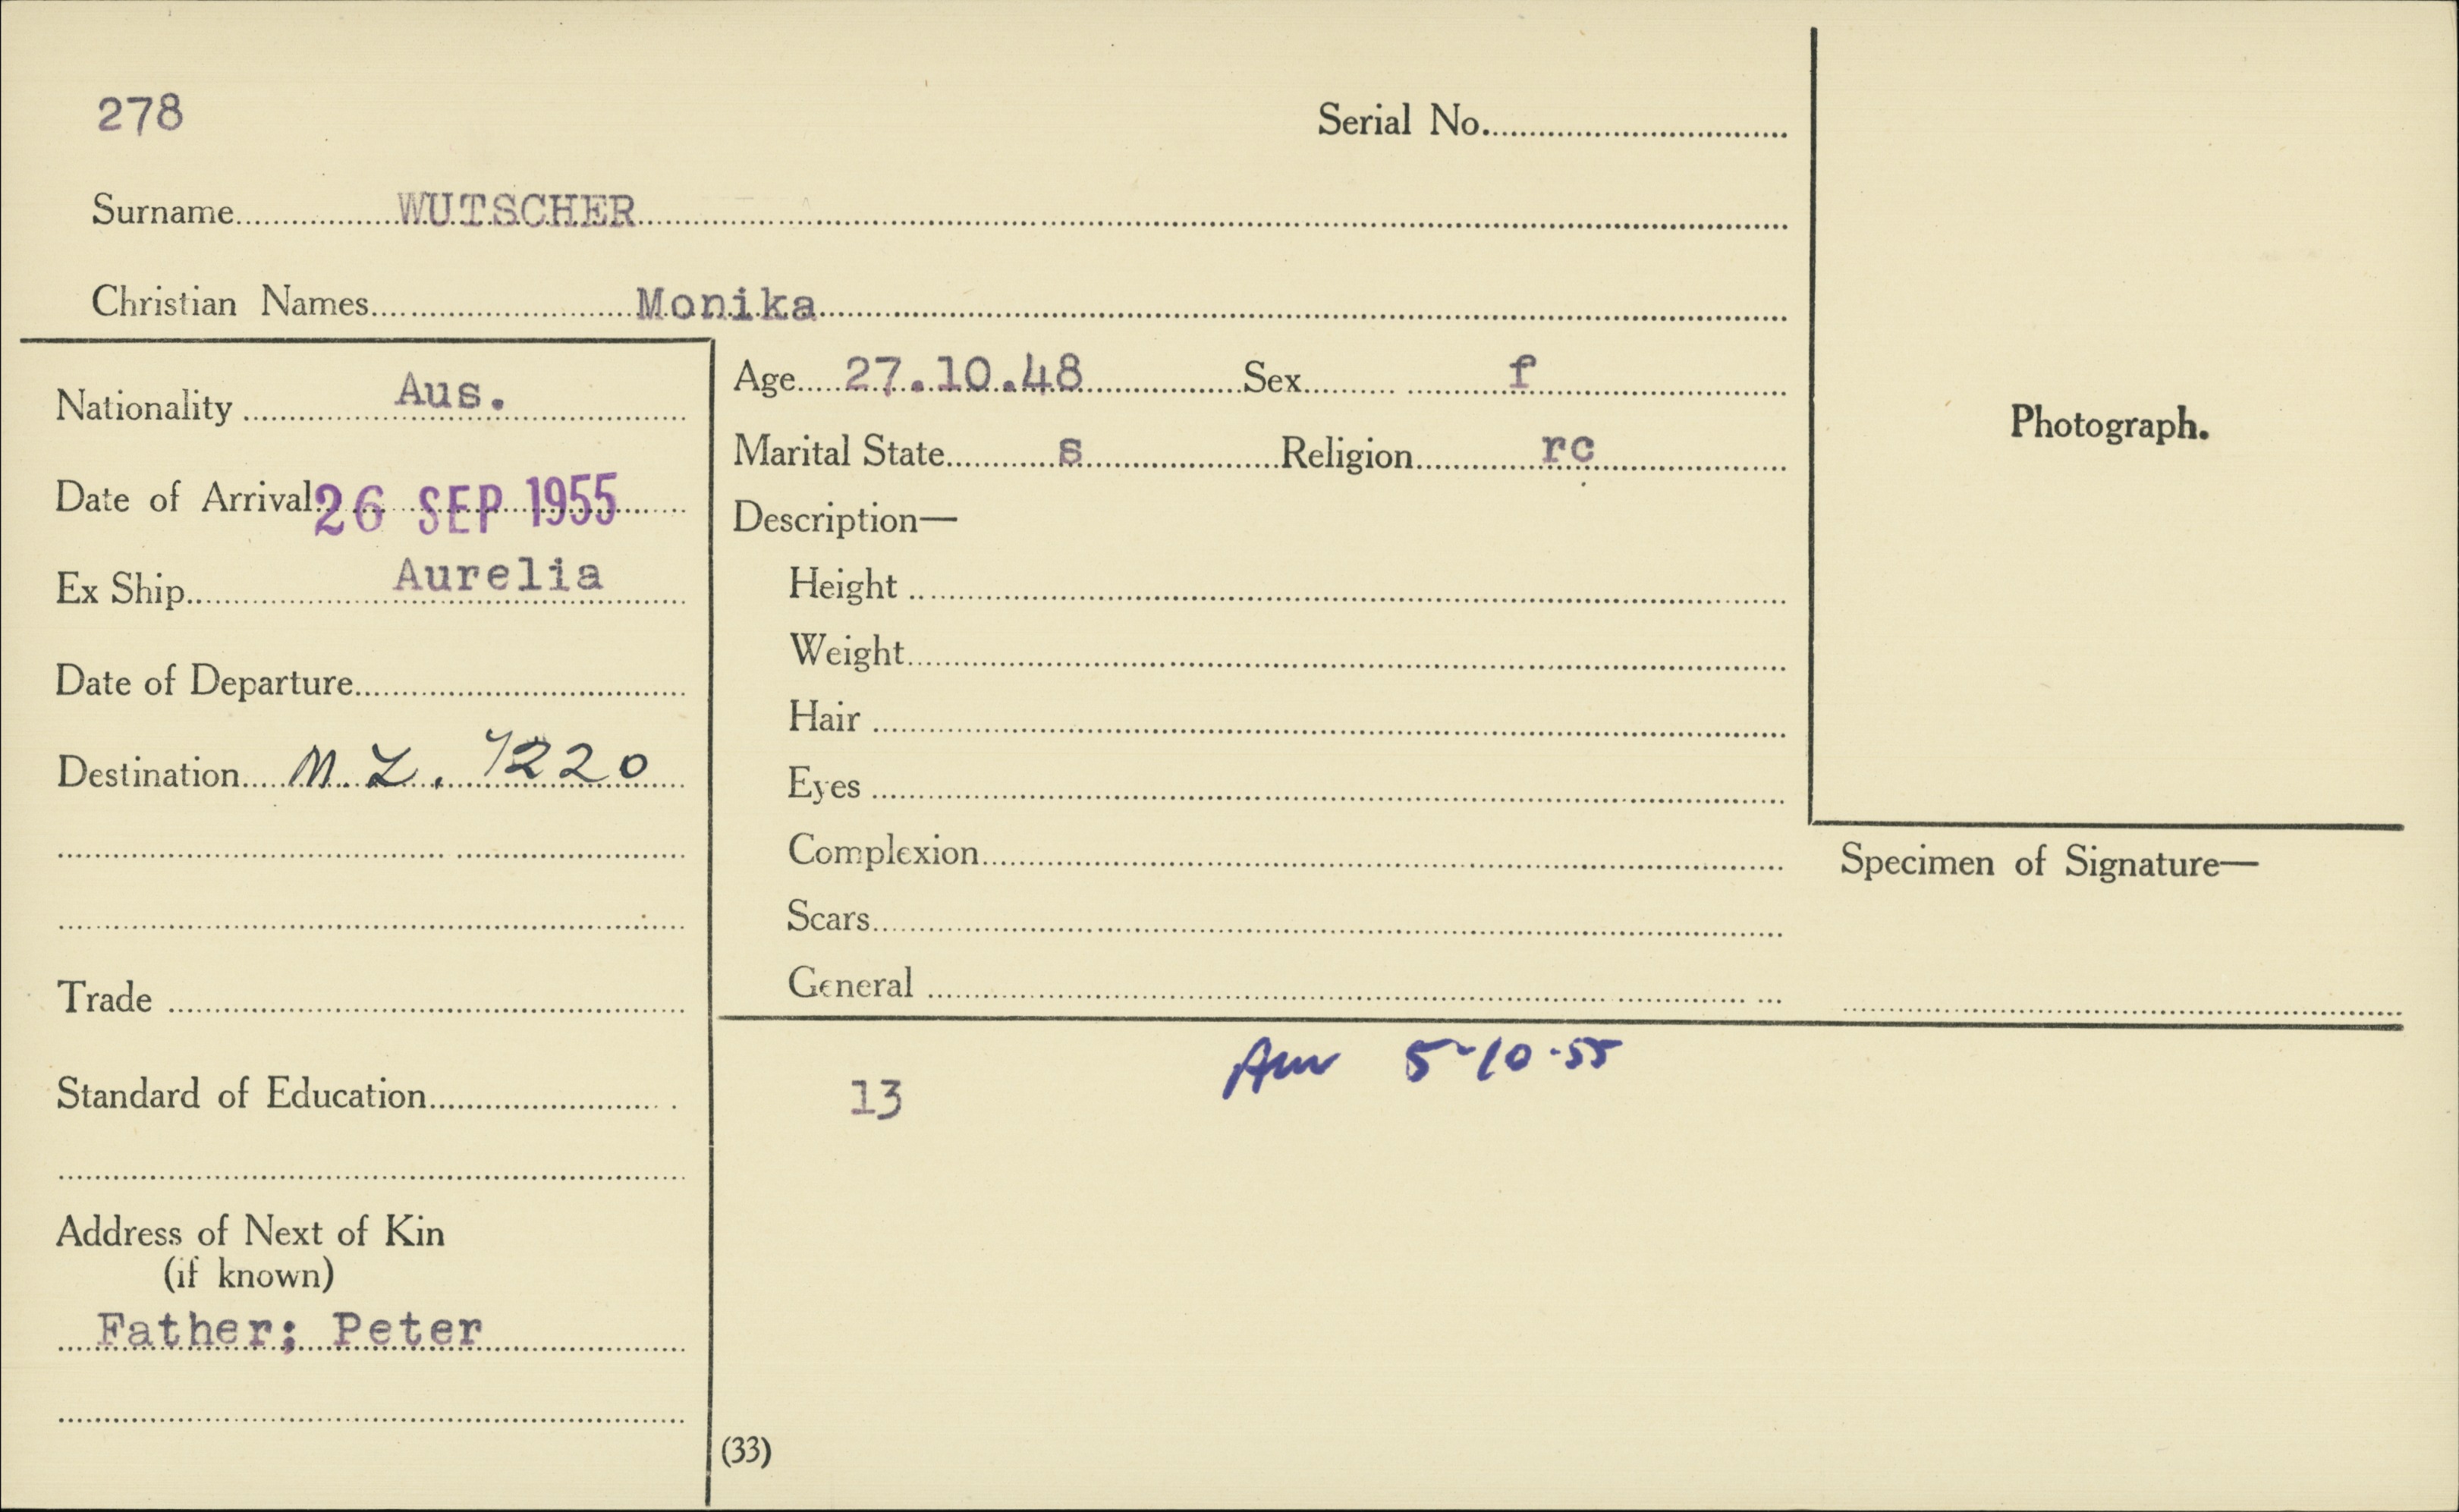 278
Serial No.
Surname WUTSCHER
Christian Names Monika
Nationality Aus.
Date of Arrival 26 SEP 1955
Ex Ship Aurelia
Date of Departure
Destination M.L. 7220
Trade
Standard of Education
Address of Next of Kin
(if known)
Father; Peter
Age 27.10.48 Sex f
Marital State s Religion rc
Description—
Height
Weight
Hair
Eyes
Complexion
Scars
General
Photograph.
Specimen of Signature—
5-10-55
13
(33)